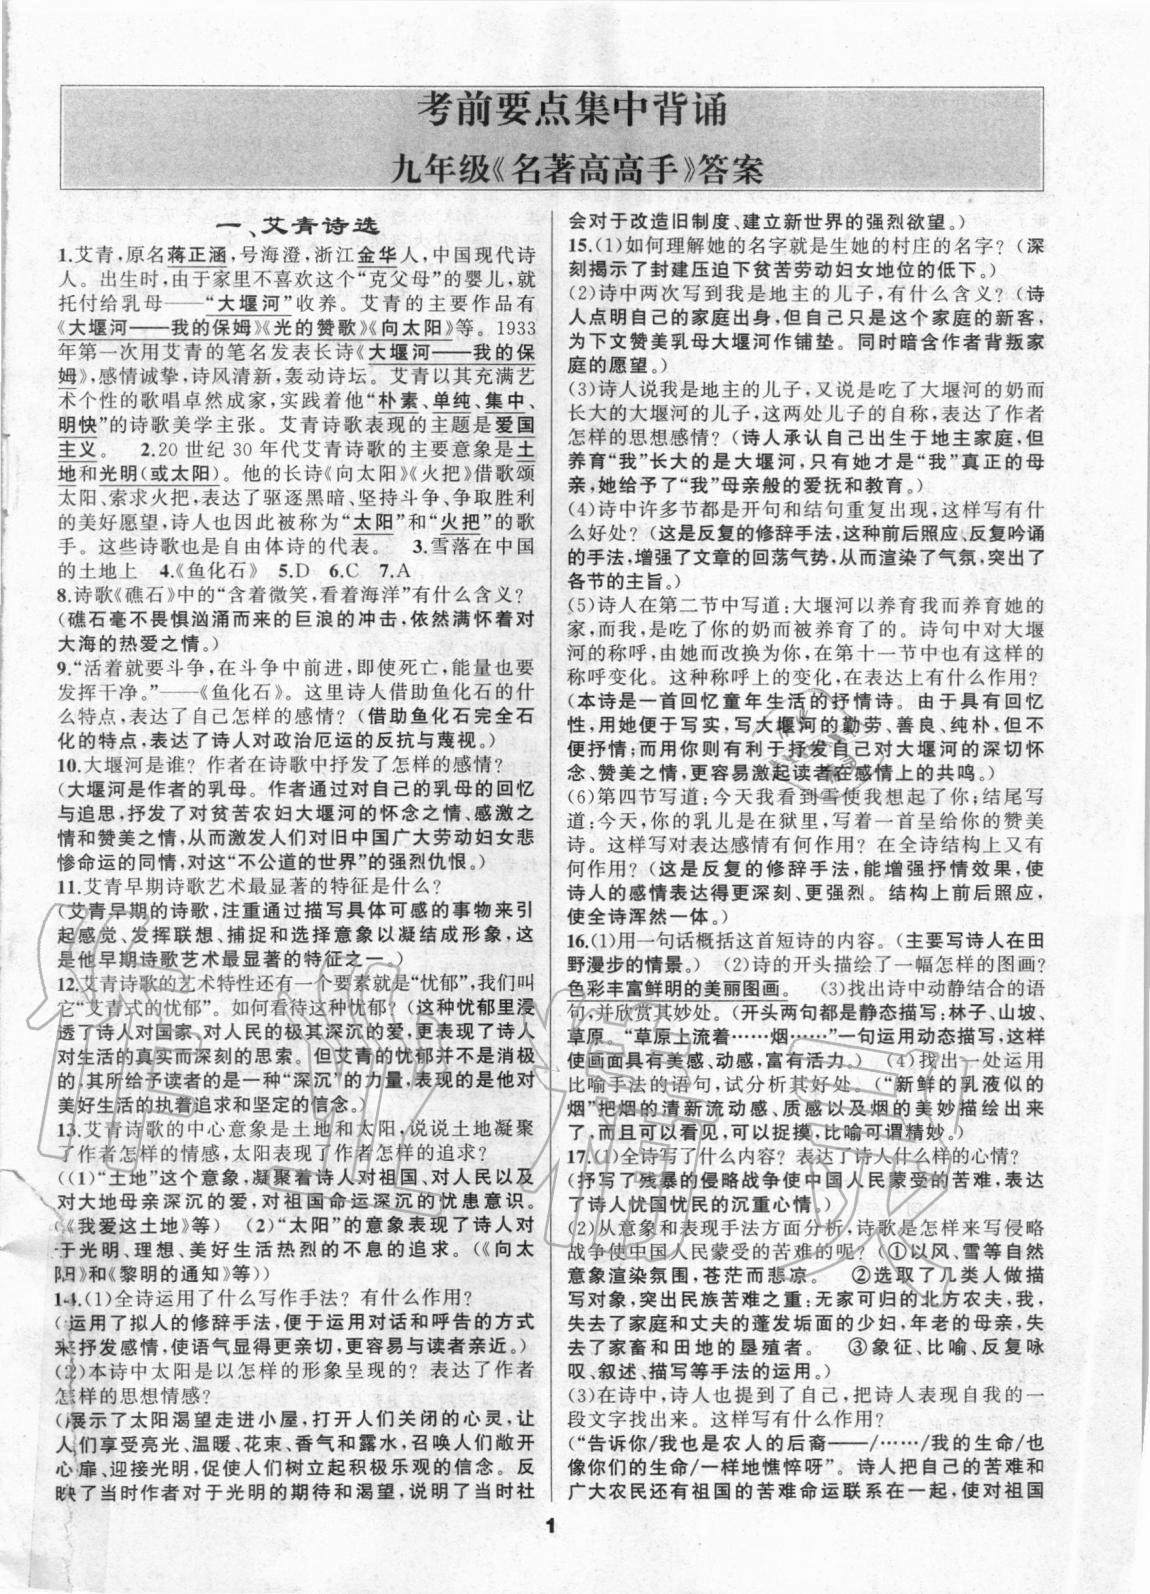 考前要点集中背诵
九年级《名著高高手》答案
一、艾青诗选
1.艾青，原名蒋正涵，号海澄，浙江金华人，中国现代诗
人。出生时，由于家里不喜欢这个“克父母”的婴儿，就
托付给乳母——“大堰河”收养。艾青的主要作品有
《大堰河——我的保姆》《光的赞歌》《向太阳》等。1933
年第一次用艾青的笔名发表长诗《大堰河——我的保
姆》，感情诚挚，诗风清新，轰动诗坛。艾青以其充满艺
术个性的歌唱卓然成家，实践着他“朴素、单纯、集中、
明快”的诗歌美学主张。艾青诗歌表现的主题是爱国
主义。　2.20 世纪 30 年代艾青诗歌的主要意象是土
地和光明(或太阳)。他的长诗《向太阳》《火把》借歌颂
太阳、索求火把，表达了驱逐黑暗、坚持斗争、争取胜利
的美好愿望，诗人也因此被称为“太阳”和“火把”的歌
手。这些诗歌也是自由体诗的代表。　3.雪落在中国
的土地上　4.《鱼化石》　5.D　6.C　7.A
8.诗歌《礁石》中的“含着微笑，看着海洋”有什么含义？
(礁石毫不畏惧汹涌而来的巨浪的冲击，依然满怀着对
大海的热爱之情。)
9.“活着就要斗争，在斗争中前进，即使死亡，能量也要
发挥干净。”——《鱼化石》。这里诗人借助鱼化石的什
么特点，表达了自己怎样的感情？(借助鱼化石完全石
化的特点，表达了诗人对政治厄运的反抗与蔑视。)
10.大堰河是谁？作者在诗歌中抒发了怎样的感情？
(大堰河是作者的乳母。作者通过对自己的乳母的回忆
与追思，抒发了对贫苦农妇大堰河的怀念之情、感激之
情和赞美之情，从而激发人们对旧中国广大劳动妇女悲
惨命运的同情，对这“不公道的世界”的强烈仇恨。)
11.艾青早期诗歌艺术最显著的特征是什么？
(艾青早期的诗歌，注重通过描写具体可感的事物来引
起感觉、发挥联想、捕捉和选择意象以凝结成形象，这
是他早期诗歌艺术最显著的特征之一。)
12.艾青诗歌的艺术特性还有一个要素就是“忧郁”，我们叫
它“艾青式的忧郁”。如何看待这种忧郁？(这种忧郁里浸
透了诗人对国家、对人民的极其深沉的爱，更表现了诗人
对生活的真实而深刻的思索。但艾青的忧郁并不是消极
的，其所给予读者的是一种“深沉”的力量，表现的是他对
美好生活的执着追求和坚定的信念。)
13.艾青诗歌的中心意象是土地和太阳，说说土地凝聚
了作者怎样的感情，太阳表现了作者怎样的追求？
((1)“土地”这个意象，凝聚着诗人对祖国、对人民以及
对大地母亲深沉的爱，对祖国命运深沉的忧患意识。
(《我爱这土地》等)　(2)“太阳”的意象表现了诗人对
于光明、理想、美好生活热烈的不息的追求。(《向太
阳》和《黎明的通知》等))
14.(1)全诗运用了什么写作手法？有什么作用？
(运用了拟人的修辞手法，便于运用对话和呼告的方式
来抒发感情，使语气显得更亲切、更容易与读者亲近。)
(2)本诗中太阳是以怎样的形象呈现的？表达了作者
怎样的思想情感？
(展示了太阳渴望走进小屋，打开人们关闭的心灵，让
人们享受亮光、温暖、花束、香气和露水，呼唤人们敞开
心扉、迎接光明，促使人们树立起积极乐观的信念。反
映了当时作者对于光明的期待和渴望，说明了当时社
会对于改造旧制度、建立新世界的强烈欲望。)
15.(1)如何理解她的名字就是生她的村庄的名字？(深
刻揭示了封建压迫下贫苦劳动妇女地位的低下。)
(2)诗中两次写到我是地主的儿子，有什么含义？(诗
人点明自己的家庭出身，但自己只是这个家庭的新客，
为下文赞美乳母大堰河作铺垫。同时暗含作者背叛家
庭的愿望。)
(3)诗人说我是地主的儿子，又说是吃了大堰河的奶而
长大的大堰河的儿子，这两处儿子的自称，表达了作者
怎样的思想感情？(诗人承认自己出生于地主家庭，但
养育“我”长大的是大堰河，只有她才是“我”真正的母
亲，她给予了“我”母亲般的爱抚和教育。)
(4)诗中许多节都是开句和结句重复出现，这样写有什
么好处？(这是反复的修辞手法，这种前后照应、反复吟诵
的手法，增强了文章的回荡气势，从而渲染了气氛，突出了
各节的主旨。)
(5)诗人在第二节中写道：大堰河以养育我而养育她的
家，而我，是吃了你的奶而被养育了的。诗句中对大堰
河的称呼，由她而改换为你，在第十一节中也有这样的
称呼变化。这种称呼上的变化，在表达上有什么作用？
(本诗是一首回忆童年生活的抒情诗。由于具有回忆
性，用她便于写实，写大堰河的勤劳、善良、纯朴，但不
便抒情；而用你则有利于抒发自己对大堰河的深切怀
念、赞美之情，更容易激起读者在感情上的共鸣。)
(6)第四节写道：今天我看到雪使我想起了你；结尾写
道：今天，你的乳儿是在狱里，写着一首呈给你的赞美
诗。这样写对表达感情有何作用？在全诗结构上又有
何作用？(这是反复的修辞手法，能增强抒情效果，使
诗人的感情表达得更深刻、更强烈。结构上前后照应，
使全诗浑然一体。)
16.(1)用一句话概括这首短诗的内容。(主要写诗人在田
野漫步的情景。)　(2)诗的开头描绘了一幅怎样的图画？
色彩丰富鲜明的美丽图画。　(3)找出诗中动静结合的语
句，并欣赏其妙处。(开头两句都是静态描写：林子、山坡、
草原。“草原上流着……烟……”一句运用动态描写，这样
使画面具有美感、动感，富有活力。)　(4)找出一处运用
比喻手法的语句，试分析其好处。(“新鲜的乳液似的
烟”把烟的清新流动感、质感以及烟的美妙描绘出来
了，而且可以看见，可以捉摸，比喻可谓精妙。)
17.(1)全诗写了什么内容？表达了诗人什么样的心情？
(抒写了残暴的侵略战争使中国人民蒙受的苦难，表达
了诗人忧国忧民的沉重心情。)
(2)从意象和表现手法方面分析，诗歌是怎样来写侵略
战争使中国人民蒙受的苦难的呢？(①以风、雪等自然
意象渲染氛围，苍茫而悲凉。　②选取了几类人做描
写对象，突出民族苦难之重：无家可归的北方农夫，我，
失去了家庭和丈夫的蓬发垢面的少妇，年老的母亲，失
去了家畜和田地的垦殖者。　③象征、比喻、反复咏
叹、叙述、描写等手法的运用。)
(3)在诗中，诗人也提到了自己，把诗人表现自我的一
段文字找出来。这样写有什么作用？
(“告诉你/我也是农人的后裔——/……/我的生命/也
像你们的生命/一样地憔悴呀”。诗人把自己的苦难和
广大农民还有祖国的苦难命运联系在一起，使对祖国
1
作业精灵